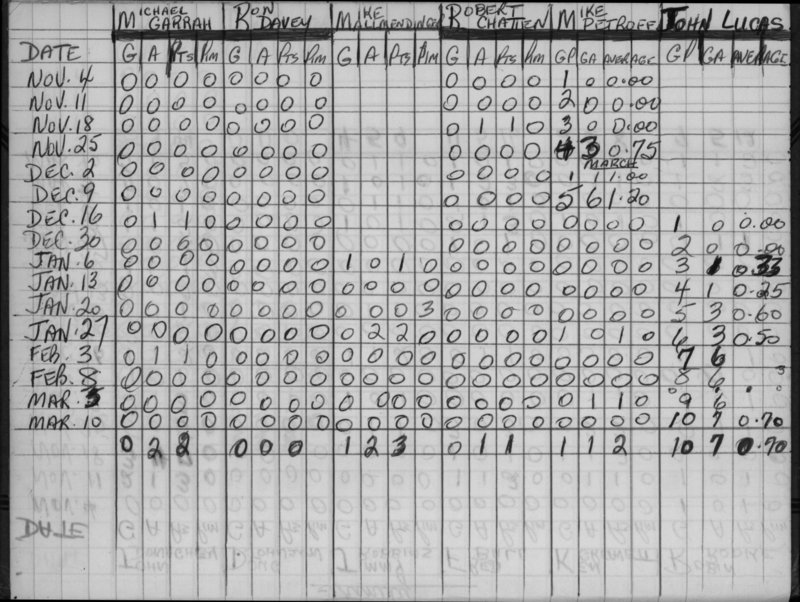 MICHAEL GARRAH RON DAVEY MIKE ALLMENDINGER ROBERT CHATTEN MIKE PETROFF JOHN LUCAS
DATE G A PTS PIM G A PTS PIM G A PTS PIM G A PTS PIM GP GA AVERAGE GP GA AVERAGE
NOV. 4 0 0 0 0 0 0 0 0 0 0 0 0 1 0 0.00
NOV. 11 0 0 0 0 0 0 0 0 0 0 0 0 2 0 0.00
NOV. 18 0 0 0 0 0 0 0 0 0 1 1 0 3 0 0.00
NOV. 25 0 0 0 0 0 0 0 0 0 0 0 0 4 3 0.75
MARCH
DEC. 2 0 0 0 0 0 0 0 0 0 0 0 0 1 1 1.00
DEC. 9 0 0 0 0 0 0 0 0 0 0 0 0 5 6 1.20
DEC. 16 0 1 1 0 0 0 0 0 0 0 0 0 0 0 0 0 1 0 0.00
DEC. 30 0 0 0 0 0 0 0 0 0 0 0 0 0 0 0 0 2 0 0.00
JAN. 6 0 0 0 0 0 0 0 0 1 0 1 0 0 0 0 0 0 0 0 0 3 1 0.33
JAN. 13 0 0 0 0 0 0 0 0 0 0 0 0 0 0 0 0 0 0 0 0 4 1 0.25
JAN. 20 0 0 0 0 0 0 0 0 0 0 0 3 0 0 0 0 0 0 0 0 5 3 0.60
JAN. 27 0 0 0 0 0 0 0 0 0 2 2 0 0 0 0 0 1 0 1 0 6 3 0.50
FEB. 3 0 1 1 0 0 0 0 0 0 0 0 0 0 0 0 0 0 0 0 0 7 6
FEB. 8 0 0 0 0 0 0 0 0 0 0 0 0 0 0 0 0 0 0 0 0 8 6
MAR. 3 0 0 0 0 0 0 0 0 0 0 0 0 0 0 0 0 0 1 1 0 9 6
MAR. 10 0 0 0 0 0 0 0 0 0 0 0 0 0 0 0 0 0 0 0 0 10 7 0.70
0 2 2 0 0 0 1 2 3 0 1 1 1 1 2 10 7 0.70